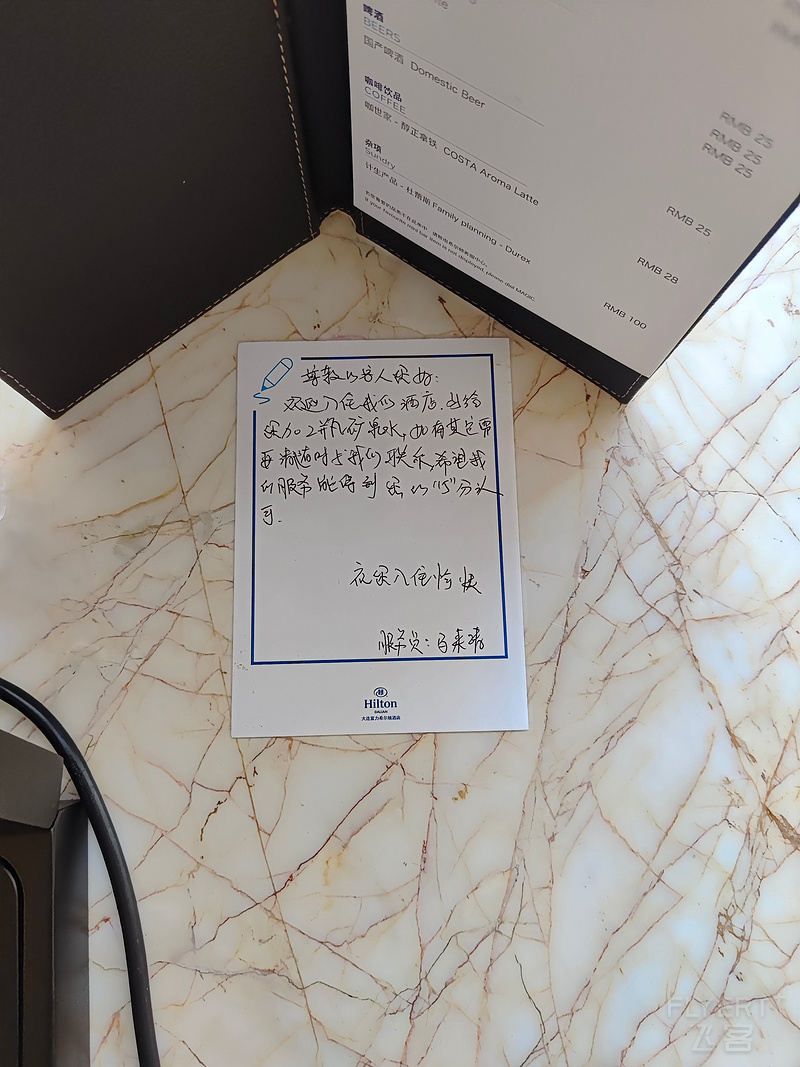 啤酒
BEERS
国产啤酒 Domestic Beer
RMB 25
RMB 25
RMB 25
咖啡饮品
COFFEE
咖世家 - 醇正拿铁 COSTA Aroma Latte
RMB 25
RMB 28
杂项
Sundry
计生产品 - 杜蕾斯 Family planning - Durex
RMB 100
If your favourite mini bar item is not displayed, please dial MAGIC.
尊敬的客人您好：
欢迎入住我们酒店，已给
您加2瓶矿泉水，如有其它需
要请随时与我们联系，希望我
们服务能得到您的“5”分认
可．
祝您入住愉快
服务员：
Hilton
DALIAN
大连富力希尔顿酒店
FLYERT
飞客